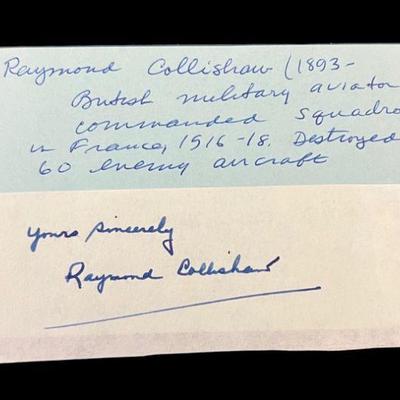 Raymond Collishaw (1893-
British military aviator
commanded squadro
in France, 1916-18. Destroyed
60 enemy aircraft
Yours sincerely
Raymond Collishaw